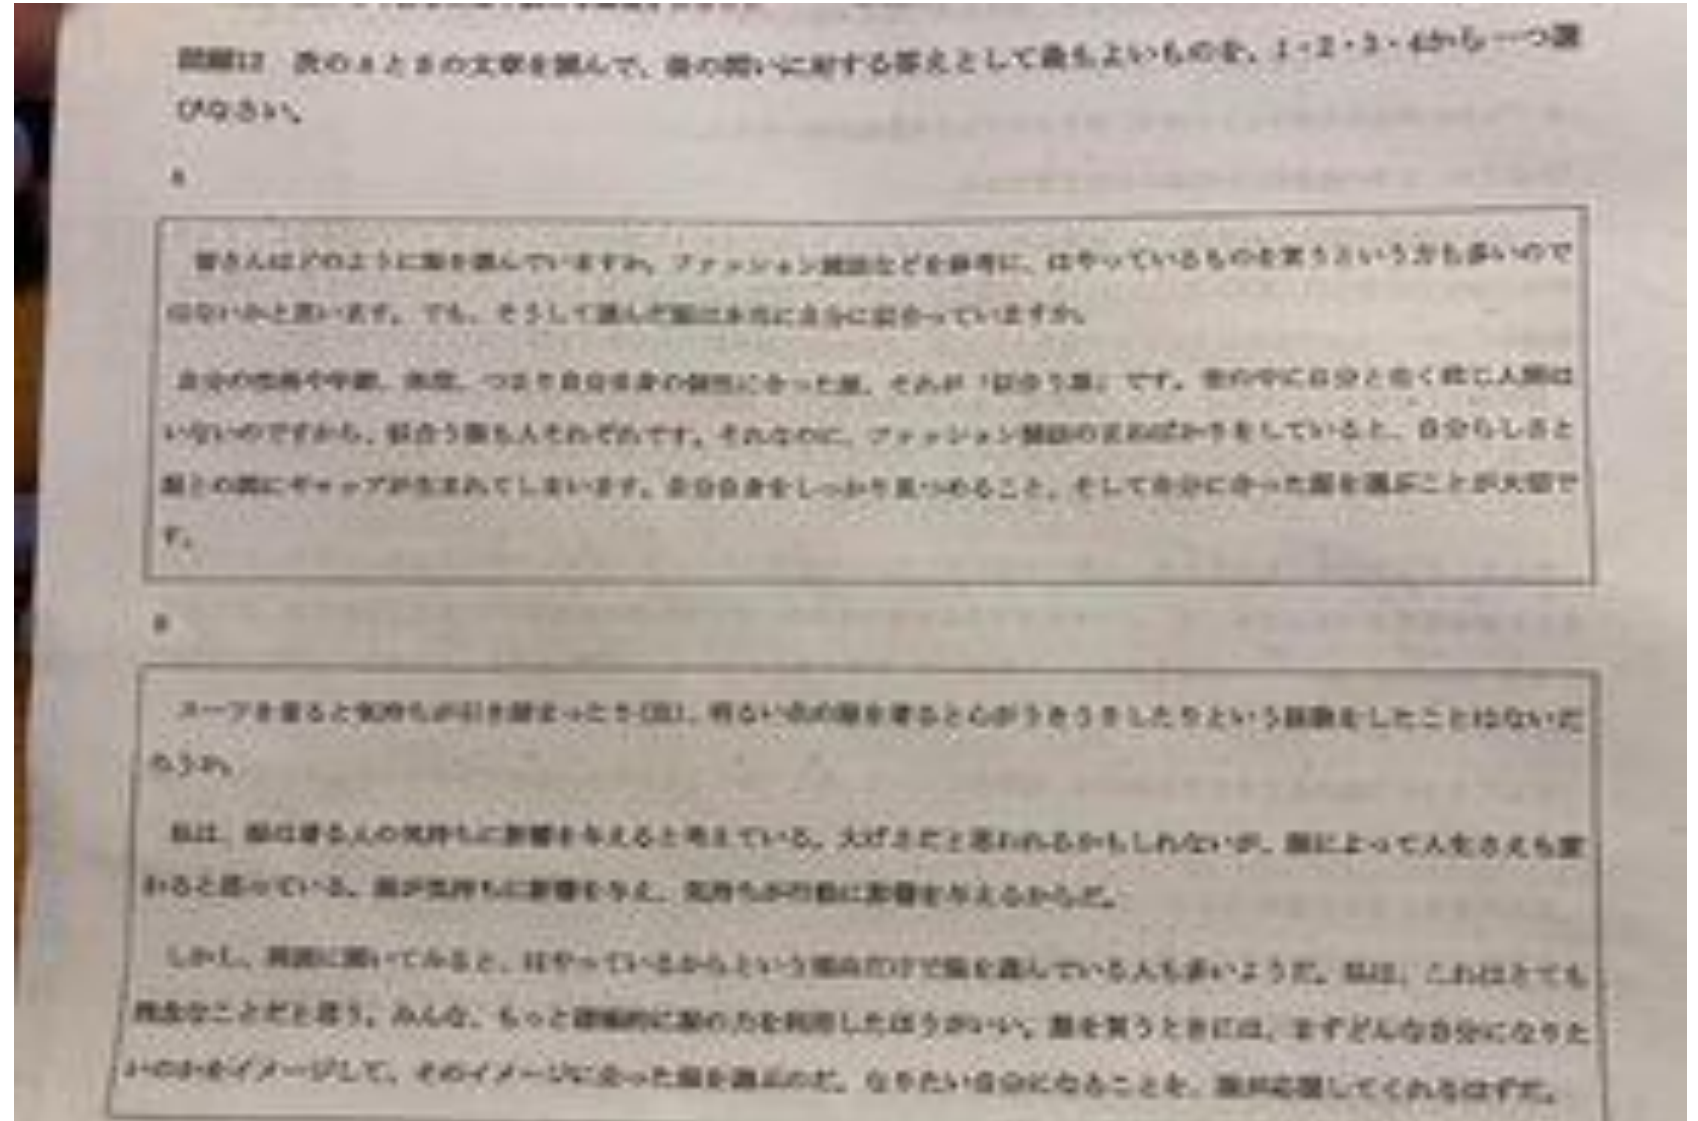 問題12 次のAとBの文章を読んで、後の問いに対する答えとして最もよいものを、1・2・3・4から一つ選
びなさい。
A
皆さんはどのように服を選んでいますか。ファッション雑誌などを参考に、はやっているものを買うという方も多いので
はないかと思います。でも、そうして選んだ服は本当に自分に似合っていますか。
自分の性格や年齢、体型、つまり自分自身の個性に合った服、それが「似合う服」です。世の中に自分と全く同じ人間は
いないのですから、似合う服も人それぞれです。それなのに、ファッション雑誌のまねばかりをしていると、自分らしさと
服との間にギャップが生まれてしまいます。自分自身をしっかり見つめること、そして自分に合った服を選ぶことが大切で
す。
B
スーツを着ると気持ちが引き締まったり(注)、明るい色の服を着ると心がうきうきしたりという経験をしたことはないだ
ろうか。
私は、服は着る人の気持ちに影響を与えると考えている。大げさだと思われるかもしれないが、服によって人生さえも変
わると思っている。服が気持ちに影響を与え、気持ちが行動に影響を与えるからだ。
しかし、周囲に聞いてみると、はやっているからという理由だけで服を選んでいる人も多いようだ。私は、これはとても
残念なことだと思う。みんな、もっと積極的に服の力を利用したほうがいい。服を買うときには、まずどんな自分になりた
いのかをイメージして、そのイメージに合った服を選ぶのだ。なりたい自分になることを、服が応援してくれるはずだ。